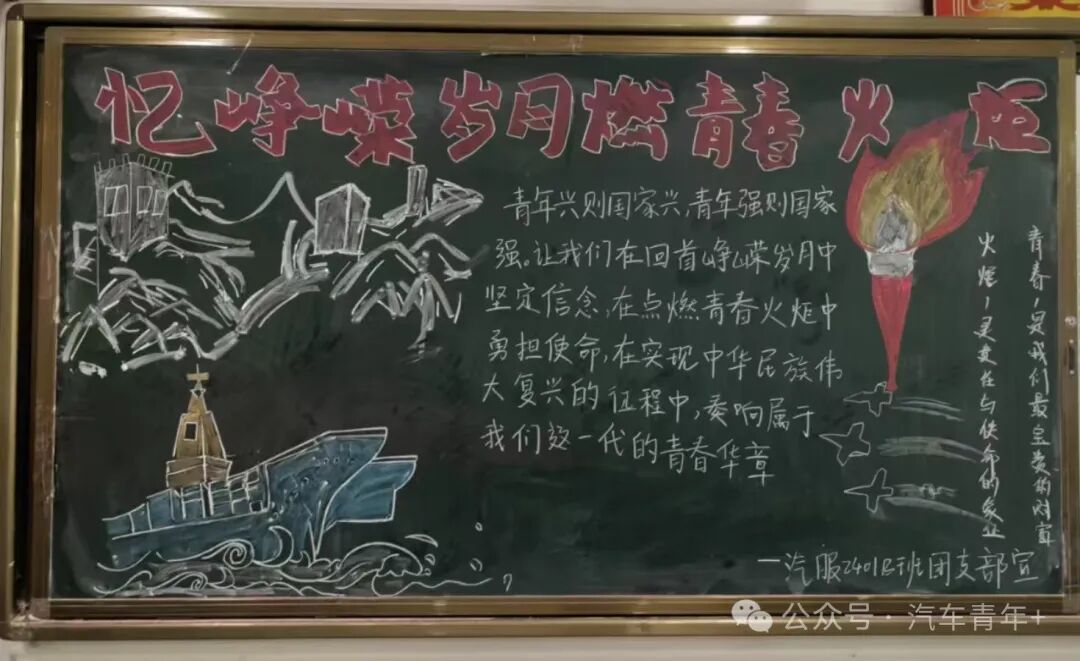 忆峥嵘岁月燃青春火炬
青年兴则国家兴,青年强则国家
强。让我们在回首峥嵘岁月中
坚定信念,在点燃青春火炬中
勇担使命,在实现中华民族伟
大复兴的征程中,奏响属于
我们这一代的青春华章
青春,是我们最宝贵的财富
火炬,是责任与使命的象征
一汽服2401B班团支部宣
公众号·汽车青年+